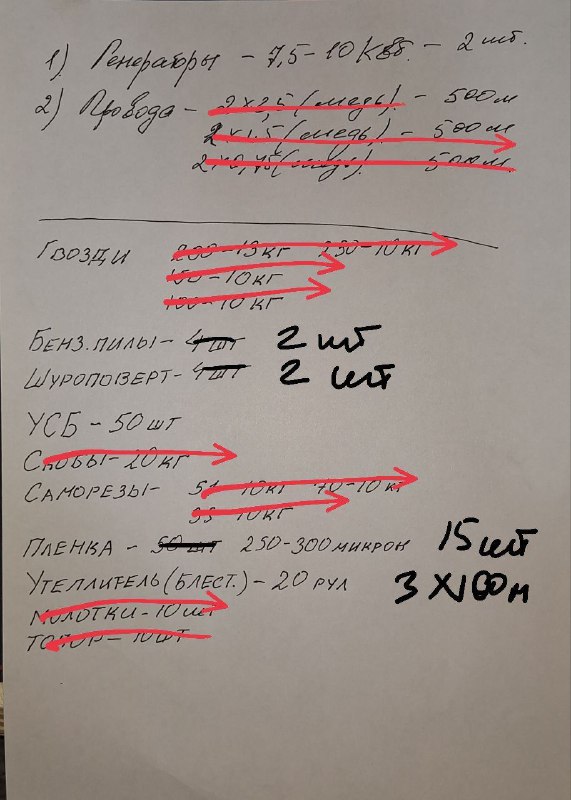 1) Генераторы – 7,5–10 Квт. – 2 шт.
2) Провода – 2×2,5 (медь). – 500м
2×1,5 (медь) – 500м
2×0,75 (медь). 500м
ГВОЗДИ 200–15 КГ 250–10 КГ
150–10 КГ
100–10 КГ
БЕНЗ.ПИЛЫ – 4 ШТ 2 шт
ШУРОПОВЕРТ – 4 ШТ 2 шт
УСБ – 50 ШТ
СКОБЫ – 20 КГ
САМОРЕЗЫ – 51–10 КГ 70–10 КГ
35–10 КГ
ПЛЕНКА – 50 ШТ 250–300 МИКРОН 15 шт
УТЕПЛИТЕЛЬ (БЛЕСТ.) – 20 РУЛ 3 × 100м
МОЛОТКИ – 10 ШТ
ТОПОР – 10 ШТ